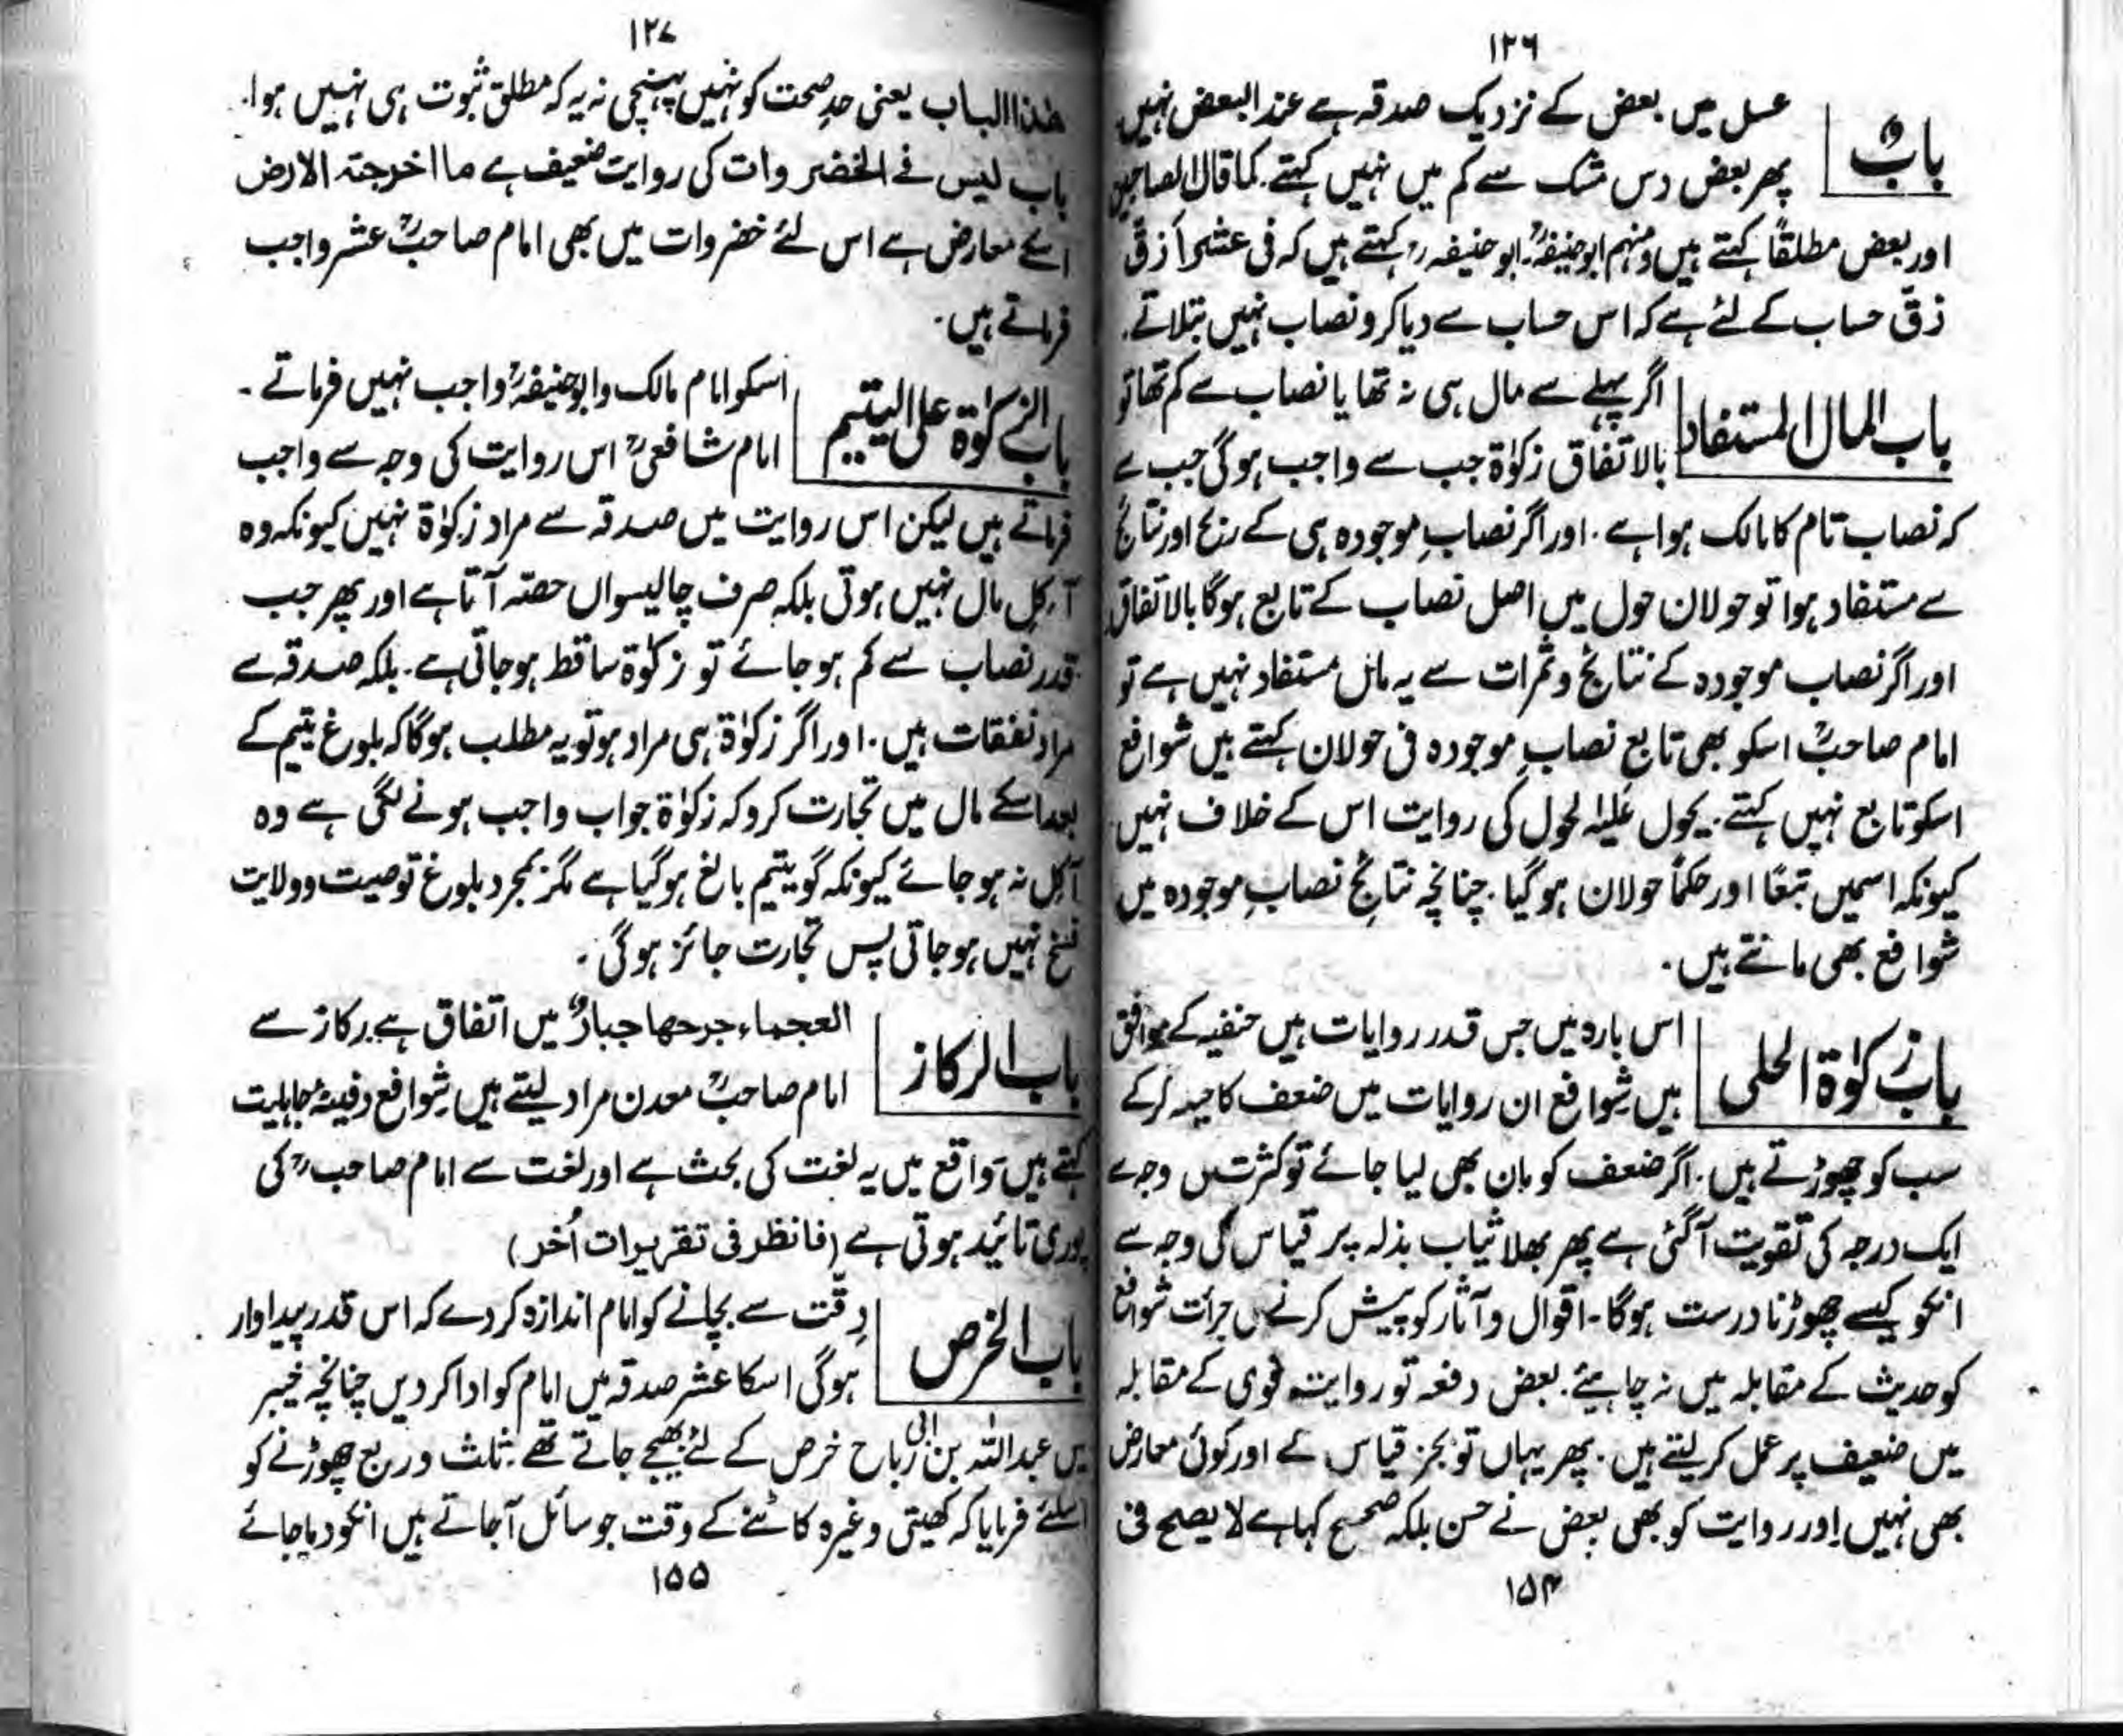 ۱۲۶
باب
عسل میں بعض کے نزدیک صدقہ ہے عند البعض نہیں
پھر بعض دس مشک سے کم میں نہیں کہتے۔ کما قال الصاحبین
اور بعض مطلقاً کہتے ہیں ومنہم ابوحنیفہؒ۔ ابو حنیفہ رح کہتے ہیں کہ فی عشرۃ أزقّ
زقّ حساب کے لئے ہے کہ اس حساب سے دیا کرو نصاب نہیں بتلاتے۔
باب المال المستفاد
اگر پہلے سے مال ہی نہ تھا یا نصاب سے کم تھا تو
بالاتفاق زکوٰۃ جب سے واجب ہوگی جب سے
کہ نصاب تام کا مالک ہوا ہے۔ اور اگر نصابِ موجودہ ہی کے ربح اور نتائج
سے مستفاد ہوا تو حولان حول میں اصل نصاب کے تابع ہوگا بالاتفاق
اور اگر نصاب موجودہ کے نتائج و ثمرات سے یہ مال مستفاد نہیں ہے تو
امام صاحبؒ اسکو بھی تابع نصابِ موجودہ فی حولان کہتے ہیں شوافع
اسکو تابع نہیں کہتے۔ یحول علیہ الحول کی روایت اس کے خلاف نہیں
کیونکہ اسمیں تبعًا اور حکماً حولان ہوگیا۔ چنانچہ نتائجِ نصابِ موجودہ میں
شوافع بھی مانتے ہیں۔
باب زکوٰۃ الحلی
اس بارہ میں جس قدر روایات ہیں حنفیہ کے موافق
ہیں شوافع ان روایات میں ضعف کا حیلہ کرکے
سب کو چھوڑتے ہیں۔ اگر ضعف کو مان بھی لیا جائے تو کثرت کی وجہ سے
ایک درجہ کی تقویت آگئی ہے پھر بھلا ثیاب بذلہ پر قیاس کی وجہ سے
انکو کیسے چھوڑنا درست ہوگا۔ اقوال و آثار کو پیش کرنے کی جرأت شوافع
کو حدیث کے مقابلہ میں نہ چاہیئے۔ بعض دفعہ تو روایت قوی کے مقابلہ
میں ضعیف پر عمل کرلیتے ہیں۔ پھر یہاں تو بجز قیاس کے اور کوئی معارض
بھی نہیں اور روایت کو بھی بعض نے حسن بلکہ صحیح کہا ہے لا یصح فی
۱۵۴
۱۲۷
ھٰذا الباب یعنی حدِ صحت کو نہیں پہنچی نہ یہ کہ مطلق ثبوت ہی نہیں ہوا۔
باب لیس فے الخضروات کی روایت ضعیف ہے ما اخرجتہ الارض
اسکے معارض ہے اس لئے خضروات میں بھی امام صاحبؒ عشر واجب
فرماتے ہیں۔
باب الزکوٰۃ علی الیتیم
اسکو امام مالک و ابوحنیفہؒ واجب نہیں فرماتے۔
امام شافعیؒ اس روایت کی وجہ سے واجب
فرماتے ہیں لیکن اس روایت میں صدقہ سے مراد زکوٰۃ نہیں کیونکہ وہ
آکلِ مال نہیں ہوتی بلکہ صرف چالیسواں حصّہ آتا ہے اور پھر جب
قدر نصاب سے کم ہو جائے تو زکوٰۃ ساقط ہوجاتی ہے۔ بلکہ صدقہ سے
مراد نفقات ہیں۔ اور اگر زکوٰۃ ہی مراد ہو تو یہ مطلب ہوگا کہ بلوغ یتیم کے
بعد اسکے مال میں تجارت کرو کہ زکوٰۃ جو اب واجب ہونے لگی ہے وہ
آکل نہ ہو جائے کیونکہ گو یتیم بالغ ہوگیا ہے مگر بمجرد بلوغ توصیت و ولایت
فسخ نہیں ہو جاتی پس تجارت جائز ہوگی۔
باب الرکاز
العجماء جرحھا جبارٌ میں اتفاق ہے رکاز سے
امام صاحبؒ معدن مراد لیتے ہیں شوافع دفینۂ جاہلیت
کہتے ہیں واقع میں یہ لغت کی بحث ہے اور لغت سے امام صاحب رح کی
پوری تائید ہوتی ہے (فانظر فی تقریرات اُخر)
باب الخرص
دِقّت سے بچانے کو امام اندازہ کردے کہ اس قدر پیداوار
ہوگی اسکا عشر صدقہ میں امام کو ادا کردیں چنانچہ خیبر
میں عبداللہ بن ابی رباح خرص کے لئے بھیجے جاتے تھے۔ ثلث و ربع چھوڑنے کو
اسلئے فرمایا کہ کھیتی وغیرہ کاٹنے کے وقت جو سائل آجاتے ہیں انکو دیا جائے
۱۵۵